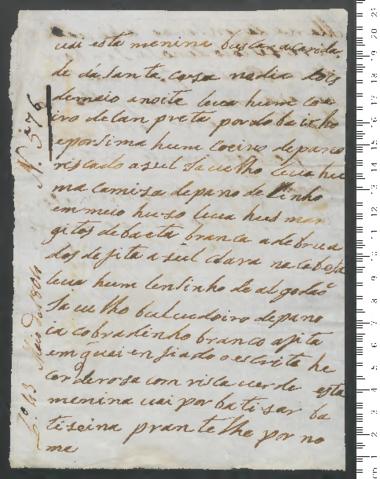 vai esta menina buscar a carida
de da Santa Casa na dia dois
de maio a noite leva hum coei
ro de lan preta por do baicho
e por sima hum coeiro de pano
riscado a sul Sacculho leva hu
ma camiza de pano de Linho
em meio huzo leva hus man
gitos de baeta branca a debrua
dos de fita a sul clara na cabesa
leva hum lensinho de algodão
Sacculho de pano
ca cobradinho branco a fita
em quai en fiado o escrito he
cor de roza com risca verde esta
menina vai por batisar ba
tiseina prantelhe por no
me
N. 576
L.º 43 Maio de 1800